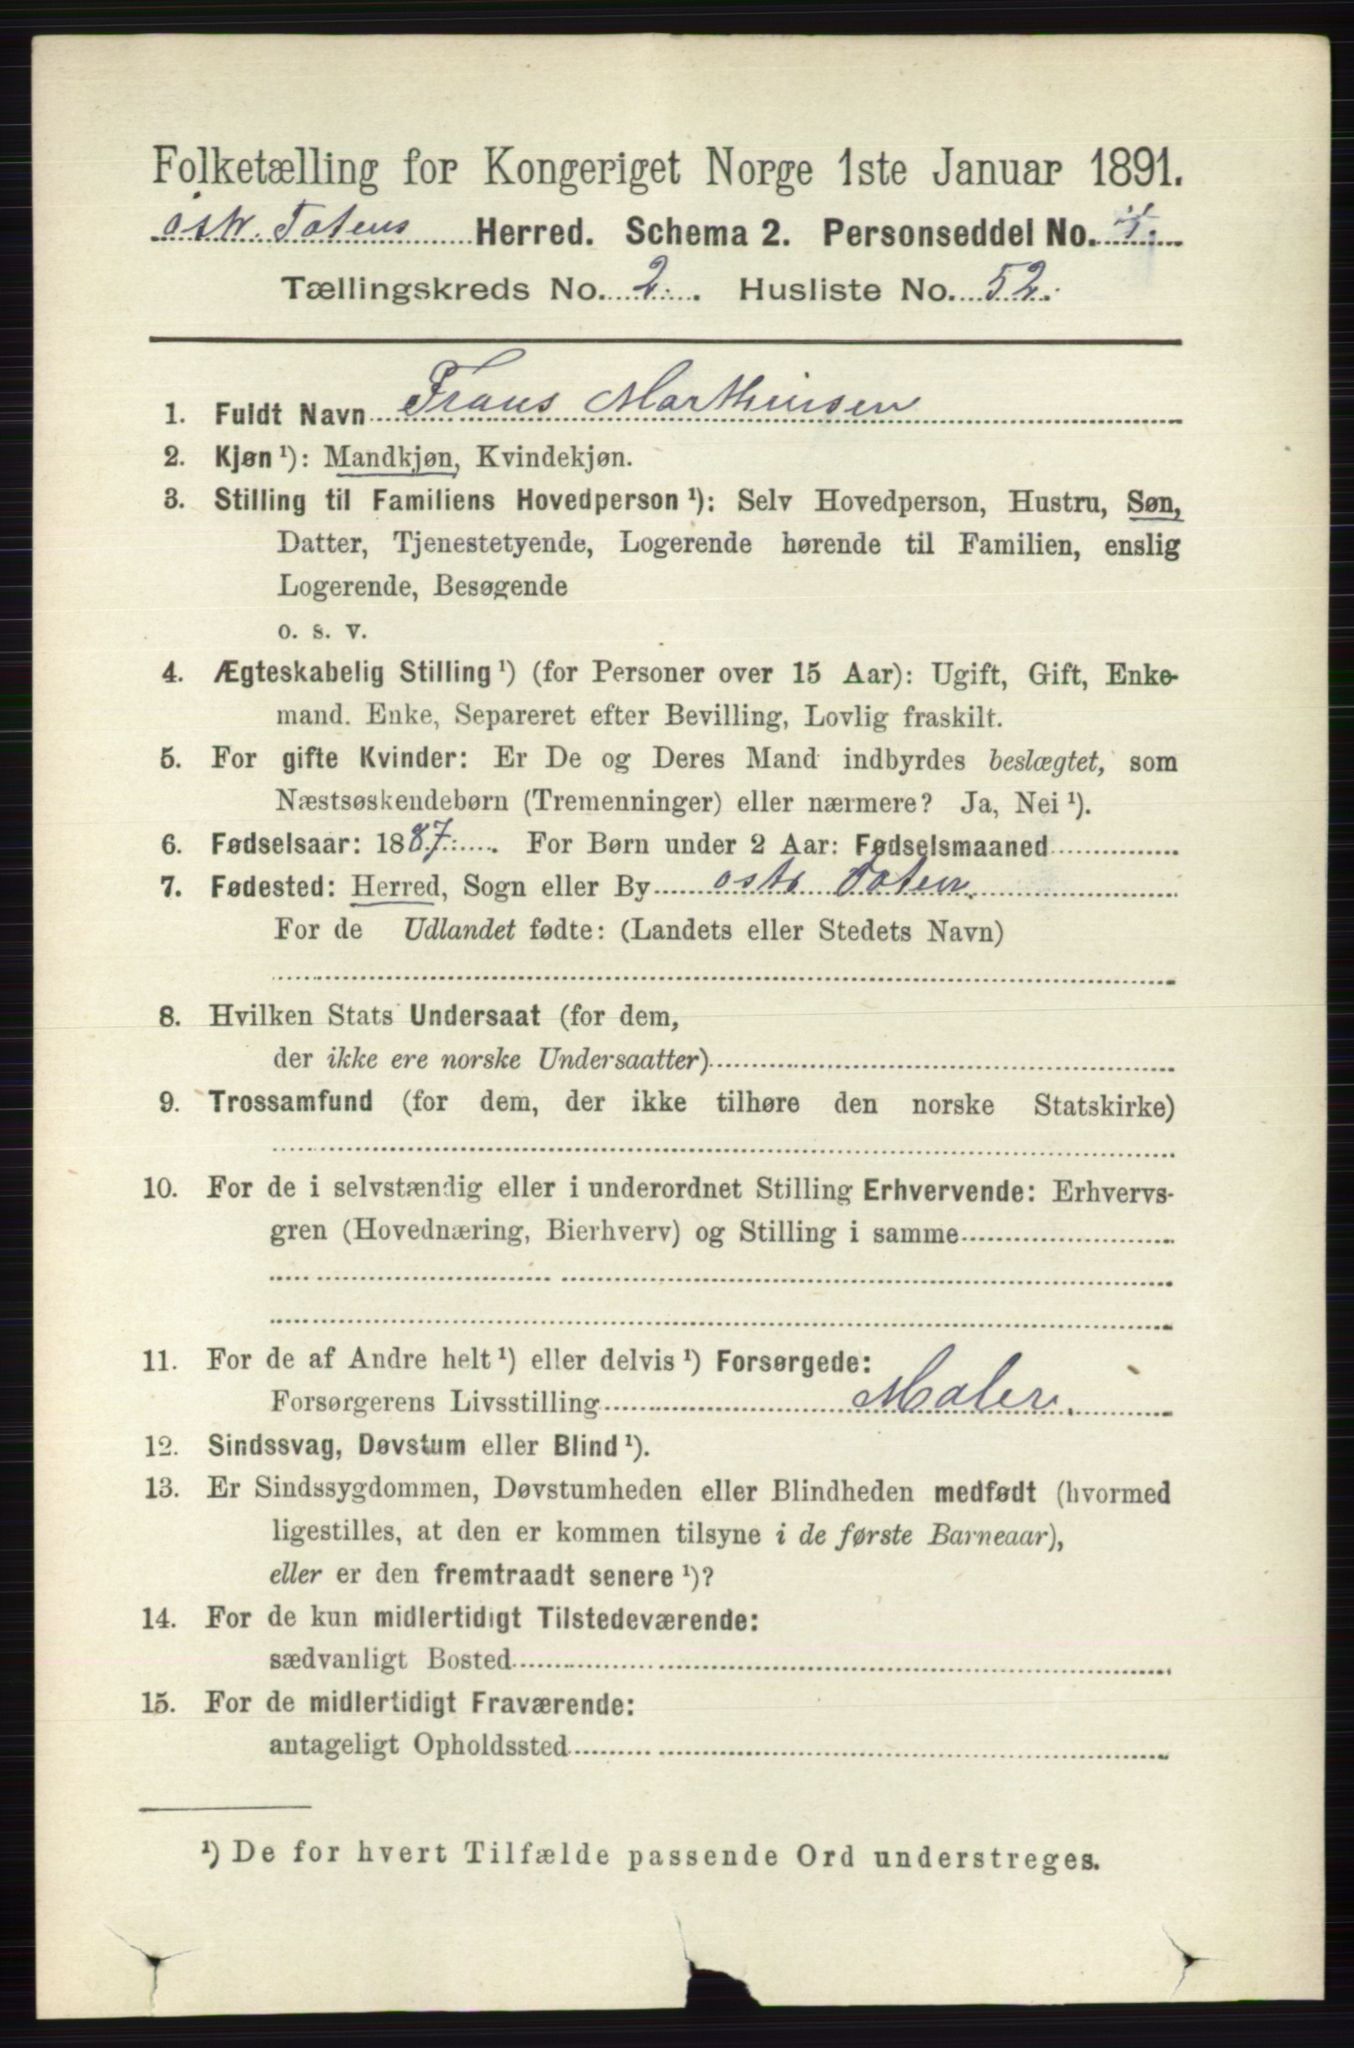 Folketælling for Kongeriget Norge 1ste Januar 1891.
østr. Totens Herred. Schema 2. Personseddel No.
Tællingskreds No. 2. Husliste No. 52.
1. Fuldt Navn Frans Marthinsen
2. Kjøn ¹): Mandkjøn, Kvindekjøn.
3. Stilling til Familiens Hovedperson ¹): Selv Hovedperson, Hustru, Søn,
Datter, Tjenestetyende, Logerende hørende til Familien, enslig
Logerende, Besøgende
o. s. v.
4. Ægteskabelig Stilling ¹) (for Personer over 15 Aar): Ugift, Gift, Enke-
mand. Enke, Separeret efter Bevilling, Lovlig fraskilt.
5. For gifte Kvinder: Er De og Deres Mand indbyrdes beslægtet, som
Næstsøskendebørn (Tremenninger) eller nærmere? Ja, Nei ¹).
6. Fødselsaar: 1887. For Børn under 2 Aar: Fødselsmaaned
7. Fødested: Herred, Sogn eller By østr Toten.
For de Udlandet fødte: (Landets eller Stedets Navn)
8. Hvilken Stats Undersaat (for dem,
der ikke ere norske Undersaatter)
9. Trossamfund (for dem, der ikke tilhøre den norske Statskirke)
10. For de i selvstændig eller i underordnet Stilling Erhvervende: Erhvervs-
gren (Hovednæring, Bierhverv) og Stilling i samme
11. For de af Andre helt ¹) eller delvis ¹) Forsørgede:
Forsørgerens Livsstilling Maler.
12. Sindssvag, Døvstum eller Blind ¹).
13. Er Sindssygdommen, Døvstumheden eller Blindheden medfødt (hvormed
ligestilles, at den er kommen tilsyne i de første Barneaar),
eller er den fremtraadt senere ¹)?
14. For de kun midlertidigt Tilstedeværende:
sædvanligt Bosted
15. For de midlertidigt Fraværende:
antageligt Opholdssted
¹) De for hvert Tilfælde passende Ord understreges.